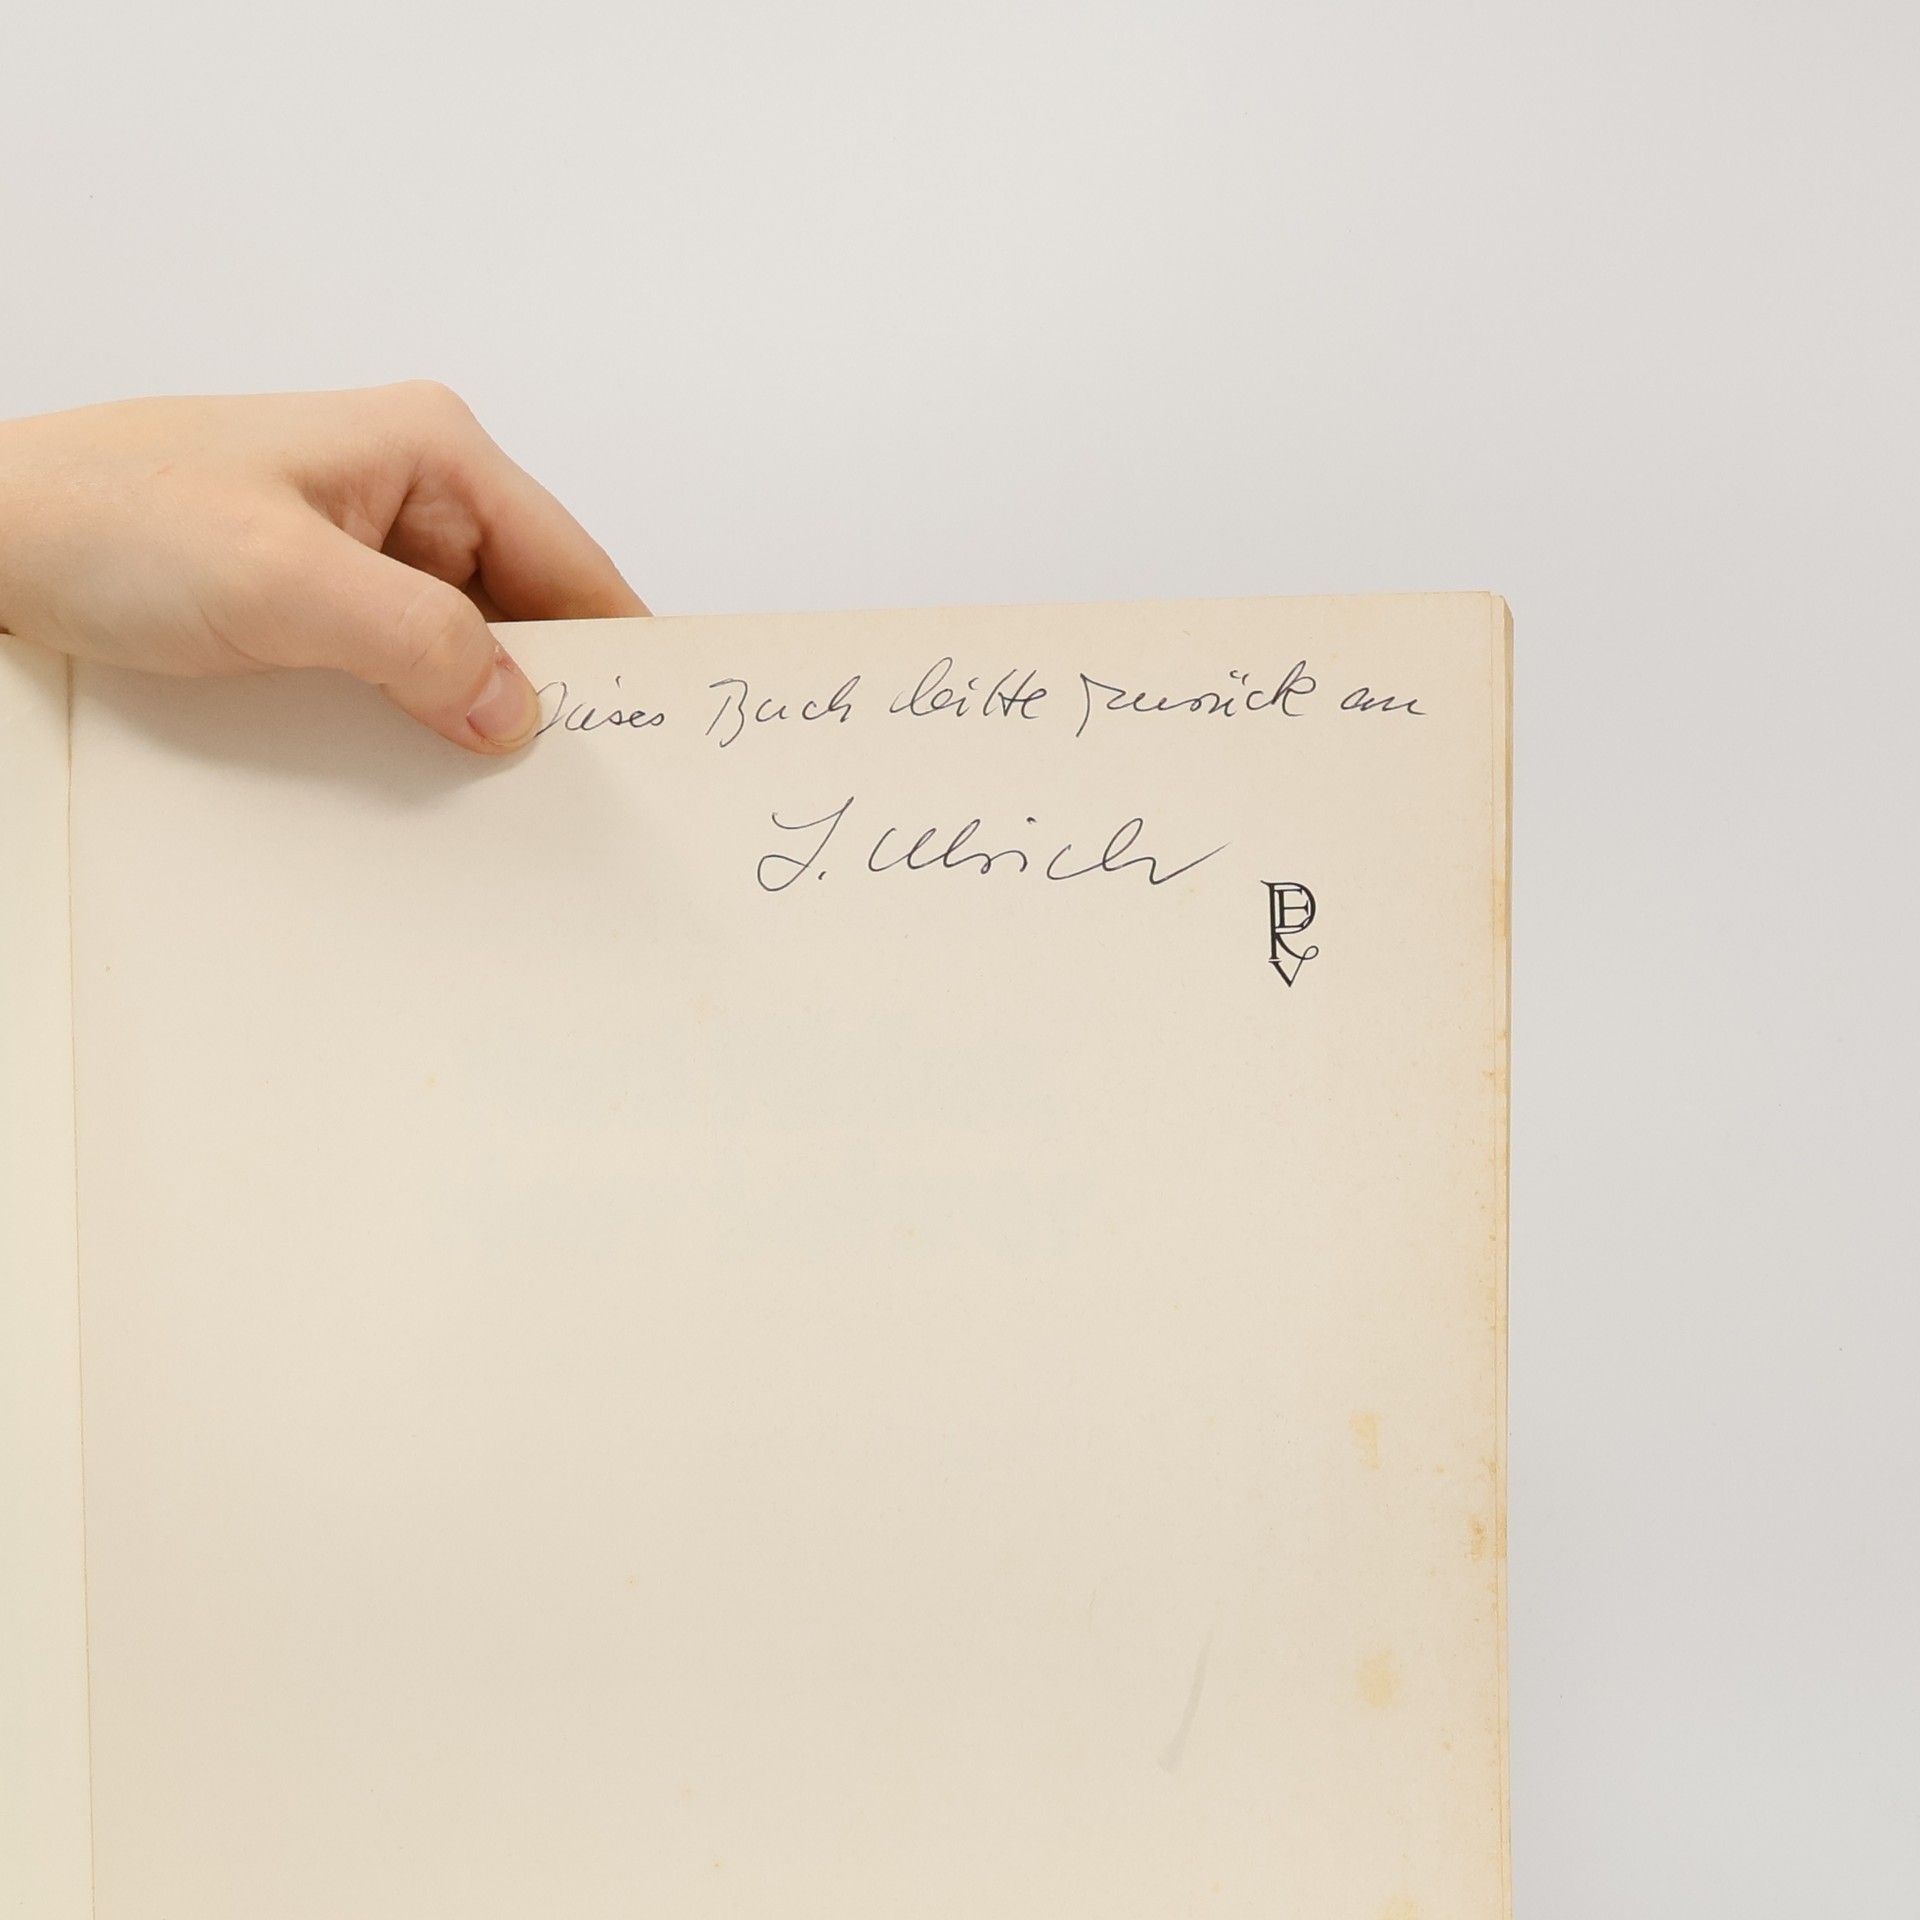 Dieses Buch bitte zurück an
J. Ullrich